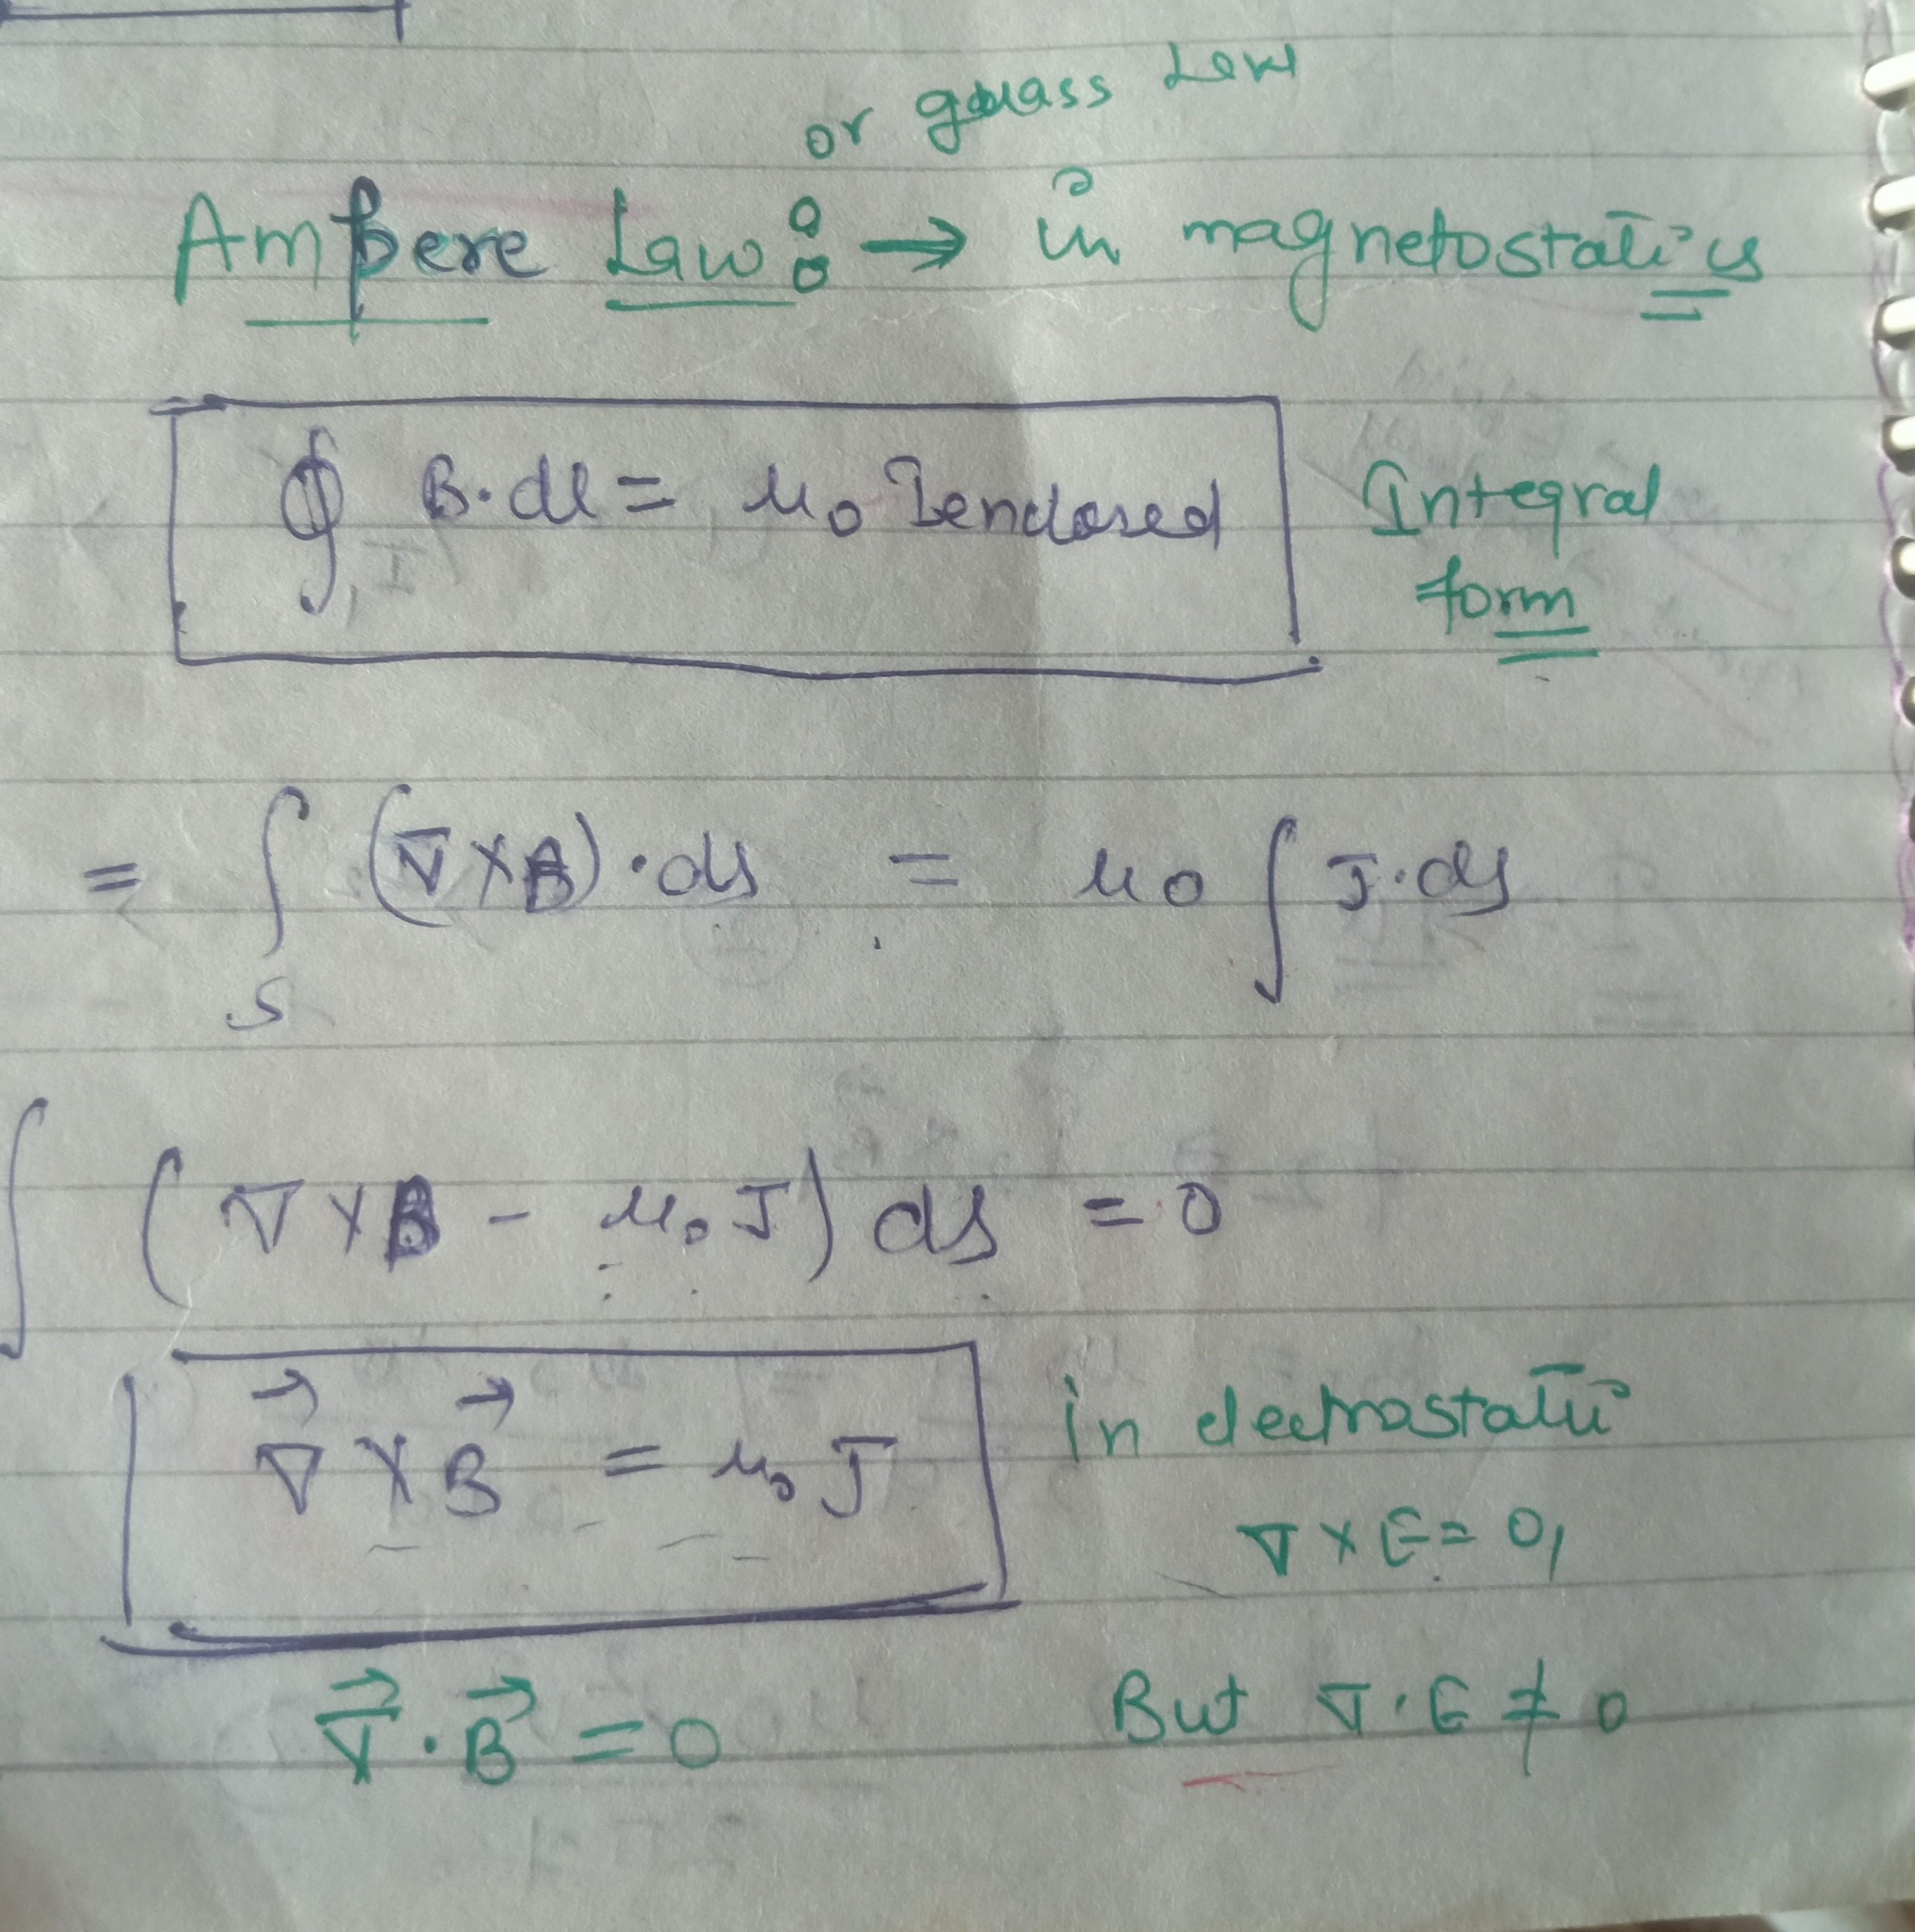 or gauass Law
Ampere Law: → in magnetostatics
∮ B·dl = μ0 Ienclosed
Integral
form
= ∫S (∇×B)·ds = μ0 ∫ J·ds
∫ (∇×B - μ0 J) ds = 0
∇⃗ × B⃗ = μ0 J
in electrostatic
∇×E = 0,
∇⃗ · B⃗ = 0
But ∇·E ≠ 0